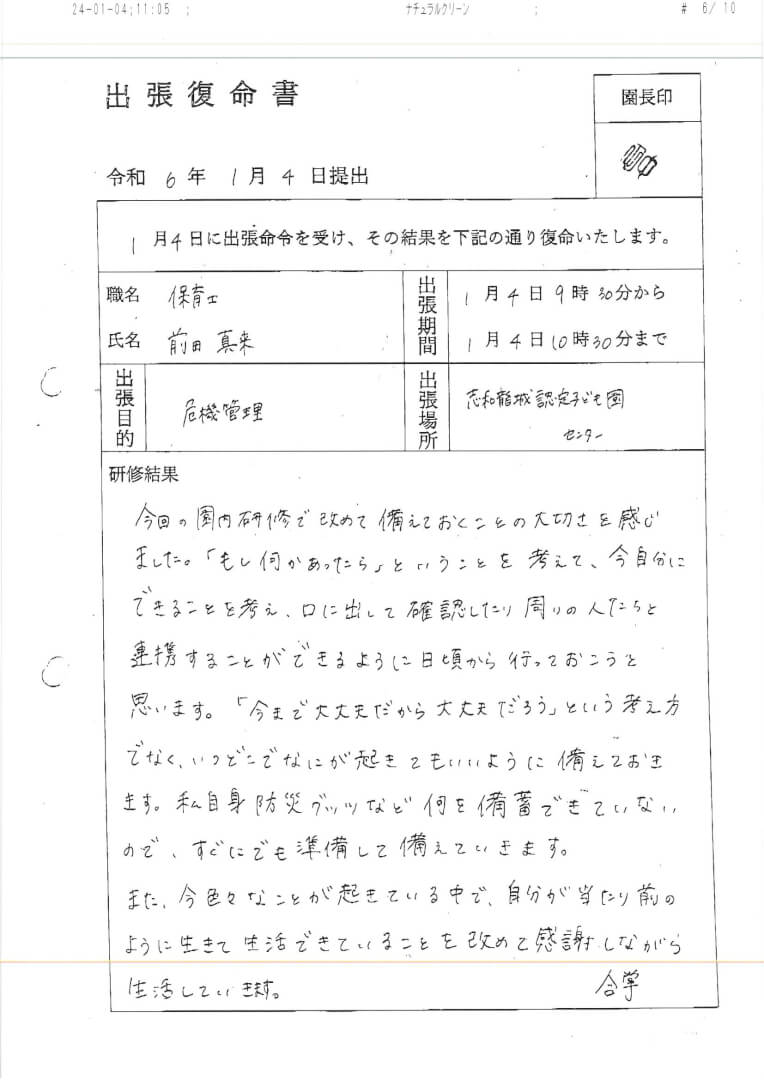 24-01-04;11:05 ; ナチュラルクリーン ; # 6/ 10
出張復命書
園長印
令和 6 年 1 月 4 日提出
1 月 4 日に出張命令を受け、その結果を下記の通り復命いたします。
職名 保育士
氏名 前田 真来
出張期間
1 月 4 日 9 時 30分から
1 月 4 日 10 時 30分まで
出張目的
危機管理
出張場所
志和龍城認定子ども園
センター
研修結果
今回の園内研修で改めて備えておくことの大切さを感じ
ました。「もし何かあったら」ということを考えて、今自分に
できることを考え、口に出して確認したり周りの人たちと
連携することができるように日頃から行っておこうと
思います。「今まで大丈夫だから大丈夫だろう」という考え方
でなく、いつどこでなにが起きてもいいように備えておき
ます。私自身防災グッツなど何を備蓄できていない
ので、すぐにでも準備して備えていきます。
また、今色々なことが起きている中で、自分が当たり前の
ように生きて生活できていることを改めて感謝しながら
生活していきます。